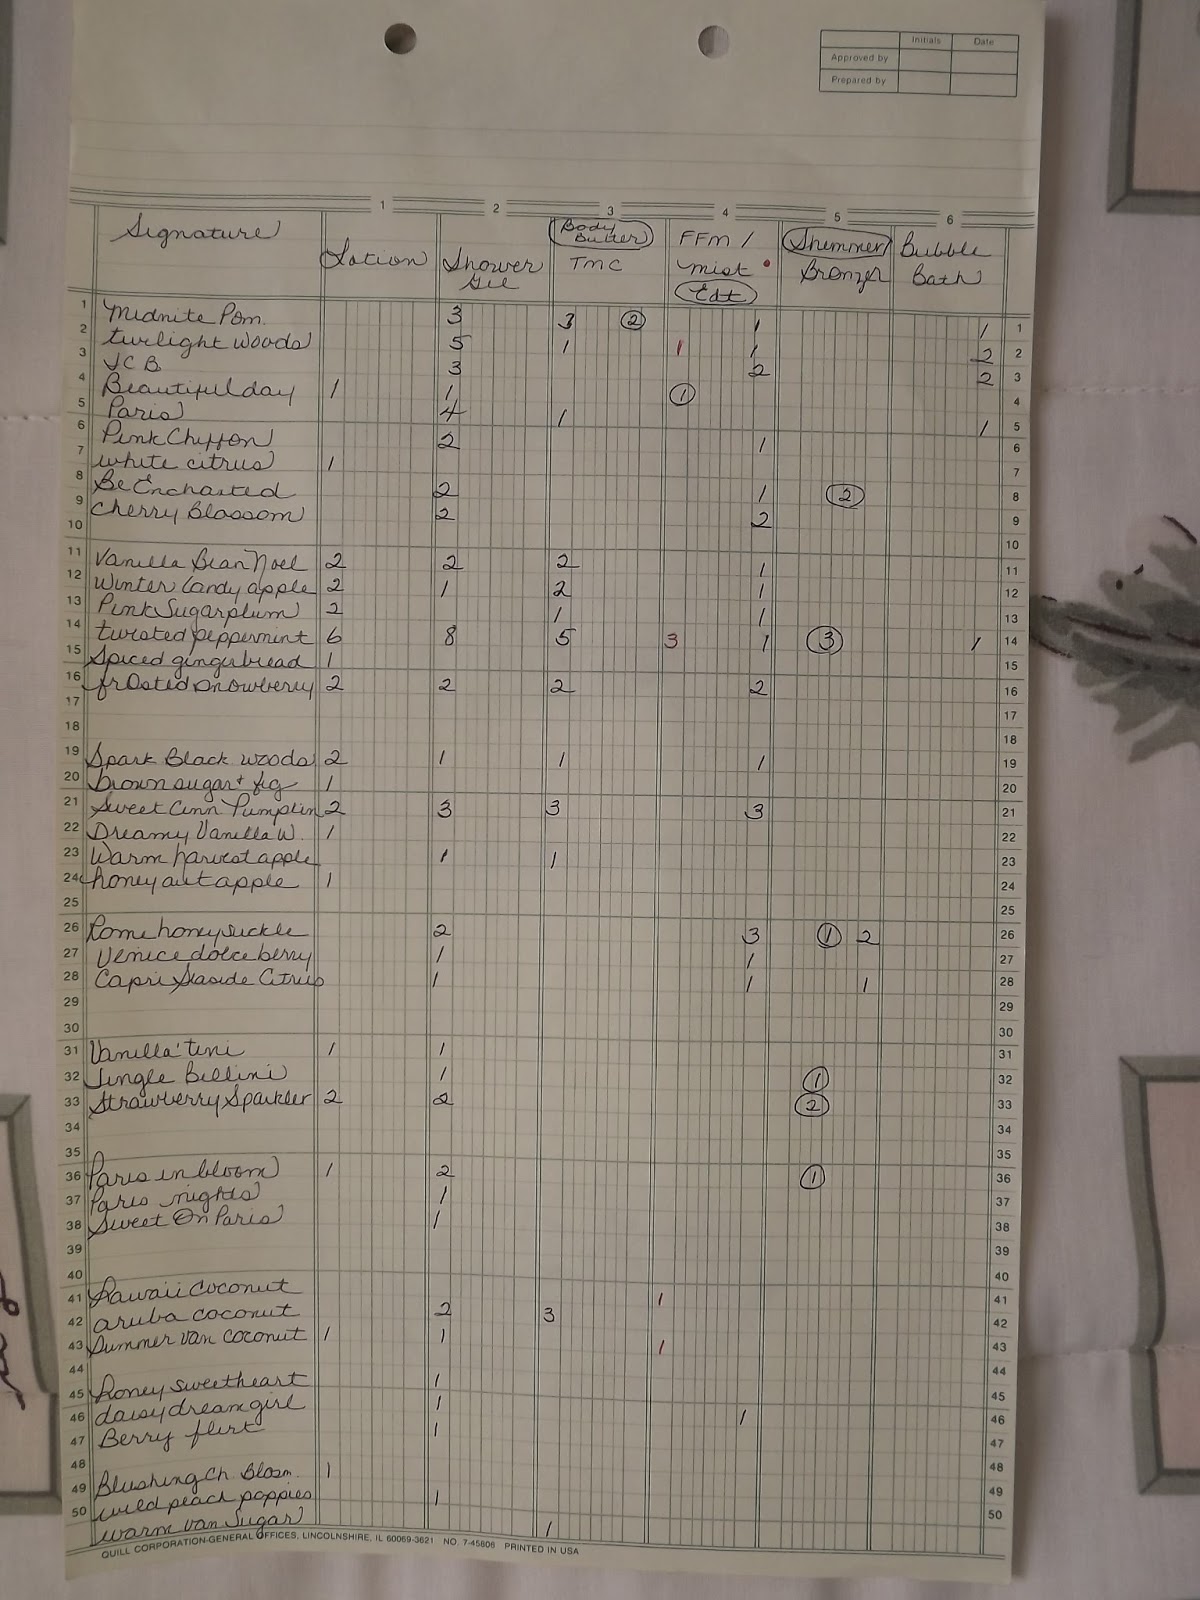 Initials Date
Approved by
Prepared by
1 2 3 4 5 6
Signature Lotion Shower Gel Body Butter TMC FFM / mist Edt Shimmer Bronzer Bubble Bath
1 Midnite Pom. 3 3 2 1 1 1
2 twilight woods 5 1 1 1 2 2
3 JCB 3 2 2 3
4 Beautiful day 1 1 1 4
5 Paris 4 1 1 5
6 Pink Chiffon 2 1 6
7 white citrus 1 7
8 Be Enchanted 2 1 2 8
9 Cherry Blossom 2 2 9
10 10
11 Vanilla Bean Noel 2 2 2 1 11
12 Winter Candy apple 2 1 2 1 12
13 Pink Sugarplum 2 1 1 13
14 twisted peppermint 6 8 5 3 1 3 1 14
15 Spiced gingerbread 1 15
16 frosted snowberry 2 2 2 2 16
17 17
18 18
19 Spark Black woods 2 1 1 1 19
20 brown sugar + fig 1 20
21 Sweet Cinn Pumpkin 2 3 3 3 21
22 Dreamy Vanilla W. 1 22
23 Warm harvest apple 1 1 23
24 honey aut apple 1 24
25 25
26 Rome honeysuckle 2 3 1 2 26
27 Venice dolce berry 1 1 27
28 Capri Seaside Citrus 1 1 1 28
29 29
30 30
31 Vanilla'tini 1 1 31
32 Jingle Bellini 1 1 32
33 Strawberry Sparkler 2 2 2 33
34 34
35 35
36 Paris in bloom 1 2 1 36
37 Paris nights 1 37
38 Sweet On Paris 1 38
39 39
40 40
41 Hawaii Coconut 1 41
42 aruba coconut 2 3 42
43 Summer van coconut 1 1 1 43
44 44
45 Honey sweetheart 1 45
46 daisy dream girl 1 1 46
47 Berry flirt 1 47
48 48
49 Blushing Ch. Blosm. 1 49
50 wild peach poppies 1 50
warm van Sugar 1
QUILL CORPORATION-GENERAL OFFICES, LINCOLNSHIRE, IL 60069-3621 NO. 7-45806 PRINTED IN USA